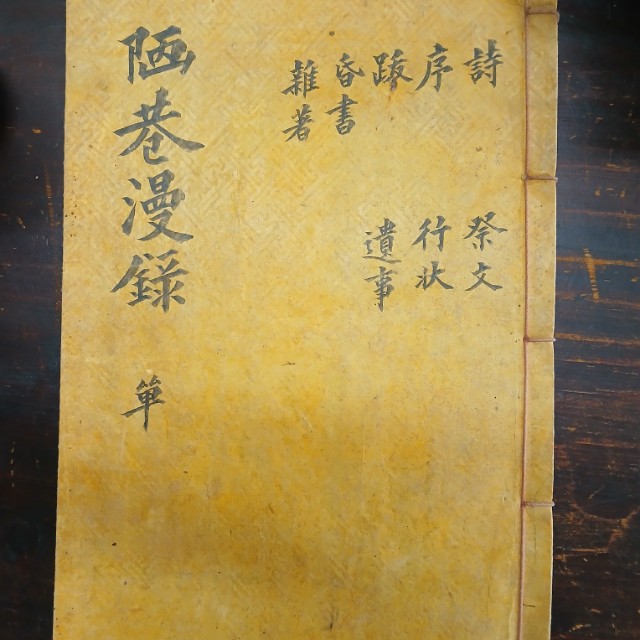 詩 祭文
序 行状
跋 遺事
昏書
雜著
陋巷漫錄 単